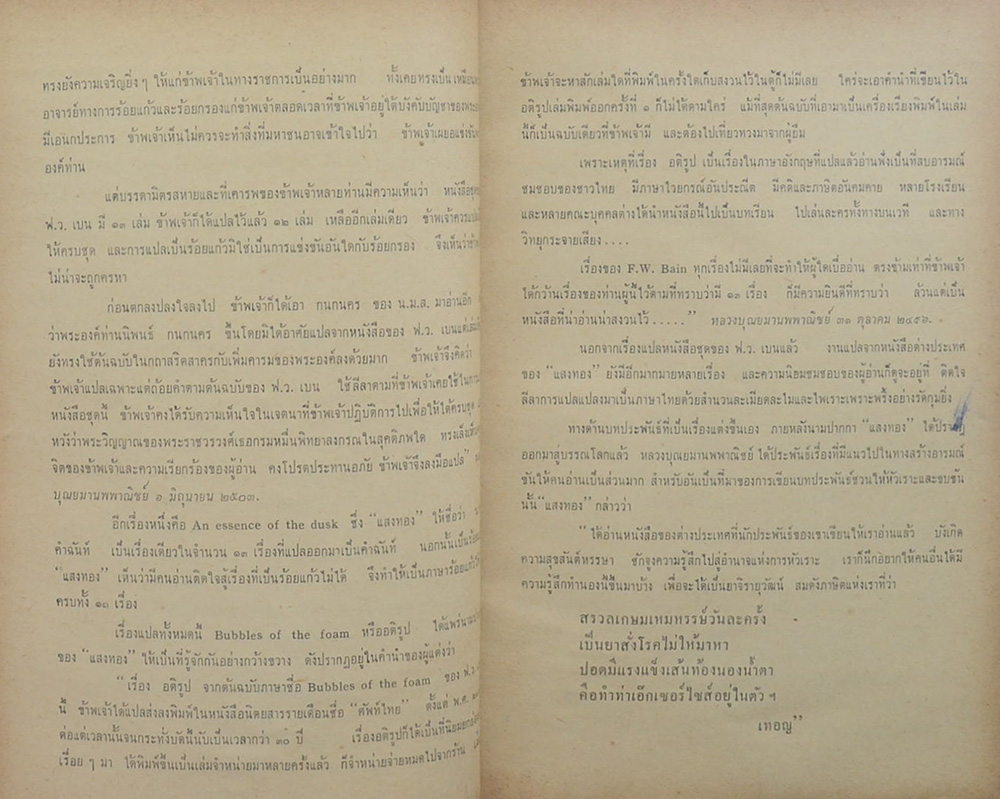 ทรงยังความเจริญยิ่ง ๆ ให้แก่ข้าพเจ้าในทางราชการเป็นอย่างมาก ทั้งเคยทรงเป็นเหมือน
อาจารย์ทางการร้อยแก้วและร้อยกรองแก่ข้าพเจ้าตลอดเวลาที่ข้าพเจ้าอยู่ใต้บังคับบัญชาของพระองค์
มีเอนกประการ ข้าพเจ้าเห็นไม่ควรจะทำสิ่งที่มหาชนอาจเข้าใจไปว่า ข้าพเจ้าเผยอแข่งขัน
องค์ท่าน
แต่บรรดามิตรสหายและที่เคารพของข้าพเจ้าหลายท่านมีความเห็นว่า หนังสือชุด
ฟ.ว. เบน มี ๑๓ เล่ม ข้าพเจ้าก็ได้แปลไว้แล้ว ๑๒ เล่ม เหลืออีกเล่มเดียว ข้าพเจ้าควรแปล
ให้ครบชุด และการแปลเป็นร้อยแก้วมิใช่เป็นการแข่งขันอันใดกับร้อยกรอง จึงเห็นว่าข้า
ไม่น่าจะถูกครหา
ก่อนตกลงปลงใจลงไป ข้าพเจ้าก็ได้เอา กนกนคร ของ น.ม.ส. มาอ่านอีก
ว่าพระองค์ท่านนิพนธ์ กนกนคร ขึ้นโดยมิได้อาศัยแปลจากหนังสือของ ฟ.ว. เบนแต่เล่มเดียว
ยังทรงใช้ต้นฉบับในกถาสริตสาครกับเพิ่มคารมของพระองค์ลงด้วยมาก ข้าพเจ้าจึงคิดว่า
ข้าพเจ้าแปลเฉพาะแต่ถ้อยคำตามต้นฉบับของ ฟ.ว. เบน ใช้ลีลาตามที่ข้าพเจ้าเคยใช้ในการ
หนังสือชุดนี้ ข้าพเจ้าคงได้รับความเห็นใจในเจตนาที่ข้าพเจ้าปฏิบัติการไปเพื่อให้ได้ครบชุด
หวังว่าพระวิญญาณของพระราชวรวงศ์เธอกรมหมื่นพิทยาลงกรณในสุคติภพใด ทรงเล็งเห็น
จิตของข้าพเจ้าและความเรียกร้องของผู้อ่าน คงโปรดประทานอภัย ข้าพเจ้าจึงลงมือแปล”
บุณยมานพพาณิชย์ ๑ มิถุนายน ๒๕๐๓.
อีกเรื่องหนึ่งคือ An essence of the dusk ซึ่ง “แสงทอง” ให้ชื่อว่า
คำฉันท์ เป็นเรื่องเดียวในจำนวน ๑๓ เรื่องที่แปลออกมาเป็นคำฉันท์ นอกนั้นเป็นร้อยแก้ว
“แสงทอง” เห็นว่ามีคนอ่านติดใจสู้เรื่องที่เป็นร้อยแก้วไม่ได้ จึงทำให้เป็นภาษาร้อยแก้ว
ครบทั้ง ๑๓ เรื่อง
เรื่องแปลทั้งหมดนี้ Bubbles of the foam หรืออติรูป ได้แพร่นาม
ของ “แสงทอง” ให้เป็นที่รู้จักกันอย่างกว้างขวาง ดังปรากฏอยู่ในคำนำของผู้แต่งว่า
“เรื่อง อติรูป จากต้นฉบับภาษาชื่อ Bubbles of the foam ของ ฟ.ว.
นี้ ข้าพเจ้าได้แปลส่งลงพิมพ์ในหนังสือนิตยสารรายเดือนชื่อ “ศัพท์ไทย” ตั้งแต่ พ.ศ.
ต่อแต่เวลานั้นจนกระทั่งบัดนี้นับเป็นเวลากว่า ๓๐ ปี เรื่องอติรูปก็ได้เป็นที่นิยมยกย่อง
เรื่อย ๆ มา ได้พิมพ์ขึ้นเป็นเล่มจำหน่ายมาหลายครั้งแล้ว ก็จำหน่ายจ่ายหมดไปจากร้าน
ข้าพเจ้าจะหาสักเล่มใดที่พิมพ์ในครั้งใดเก็บสงวนไว้ในตู้ก็ไม่มีเลย ใคร่จะเอาคำนำที่เขียนไว้ใน
อติรูปเล่มพิมพ์ออกครั้งที่ ๑ ก็ไม่ได้ตามใคร่ แม้ที่สุดต้นฉบับที่เอามาเป็นเครื่องเรียงพิมพ์ในเล่ม
นี้ก็เป็นฉบับเดียวที่ข้าพเจ้ามี และต้องไปเที่ยวทวงมาจากผู้ยืม
เพราะเหตุที่เรื่อง อติรูป เป็นเรื่องในภาษาอังกฤษที่แปลแล้วอ่านฟังเป็นที่สบอารมณ์
ชมชอบของชาวไทย มีภาษาไวยกรณ์อันประณีต มีคติและภาษิตอันคมคาย หลายโรงเรียน
และหลายคณะบุคคลต่างได้นำหนังสือนี้ไปเป็นบทเรียน ไปเล่นละครทั้งทางบนเวที และทาง
วิทยุกระจายเสียง....
เรื่องของ F.W. Bain ทุกเรื่องไม่มีเลยที่จะทำให้ผู้ใดเบื่ออ่าน ตรงข้ามเท่าที่ข้าพเจ้า
ได้กว้านเรื่องของท่านผู้นี้ไว้ตามที่ทราบว่ามี ๑๓ เรื่อง ก็มีความยินดีที่ทราบว่า ล้วนแต่เป็น
หนังสือที่น่าอ่านน่าสงวนไว้.....” หลวงบุณยมานพพาณิชย์ ๓๑ ตุลาคม ๒๔๙๖.
นอกจากเรื่องแปลหนังสือชุดของ ฟ.ว. เบนแล้ว งานแปลจากหนังสือต่างประเทศ
ของ “แสงทอง” ยังมีอีกมากมายหลายเรื่อง และความนิยมชมชอบของผู้อ่านก็ดูจะอยู่ที่ ติดใจ
ลีลาการแปลแปลงมาเป็นภาษาไทยด้วยสำนวนละเมียดละไมและไพเราะเพราะพริ้งอย่างรัดกุมยิ่ง
ทางด้านบทประพันธ์ที่เป็นเรื่องแต่งขึ้นเอง ภายหลังนามปากกา “แสงทอง” ได้ปรากฏ
ออกมาสู่บรรณโลกแล้ว หลวงบุณยมานพพาณิชย์ ได้ประพันธ์เรื่องที่มีแนวไปในทางสร้างอารมณ์
ขันให้คนอ่านเป็นส่วนมาก สำหรับอันเป็นที่มาของการเขียนบทประพันธ์ชวนให้หัวเราะและขบขัน
นั้น “แสงทอง” กล่าวว่า
“ได้อ่านหนังสือของต่างประเทศที่นักประพันธ์ของเขาเขียนให้เราอ่านแล้ว บังเกิด
ความสุขสันต์หรรษา ชักจูงความรู้สึกไปสู่อำนาจแห่งการหัวเราะ เราก็นึกอยากให้คนอื่นได้มี
ความรู้สึกทำนองนี้ขึ้นมาบ้าง เพื่อจะได้เป็นยาจิรายุวัฒน์ สมดังภาษิตแห่งเราที่ว่า
สรวลเกษมเหมหรรษ์วันละครั้ง
เป็นยาสั่งโรคไม่ให้มาหา
ปอดมีแรงแข็งเส้นท้องนองน้ำตา
คือทำท่าเอ๊กเซอร์ไซส์อยู่ในตัว ฯ
เทอญ”